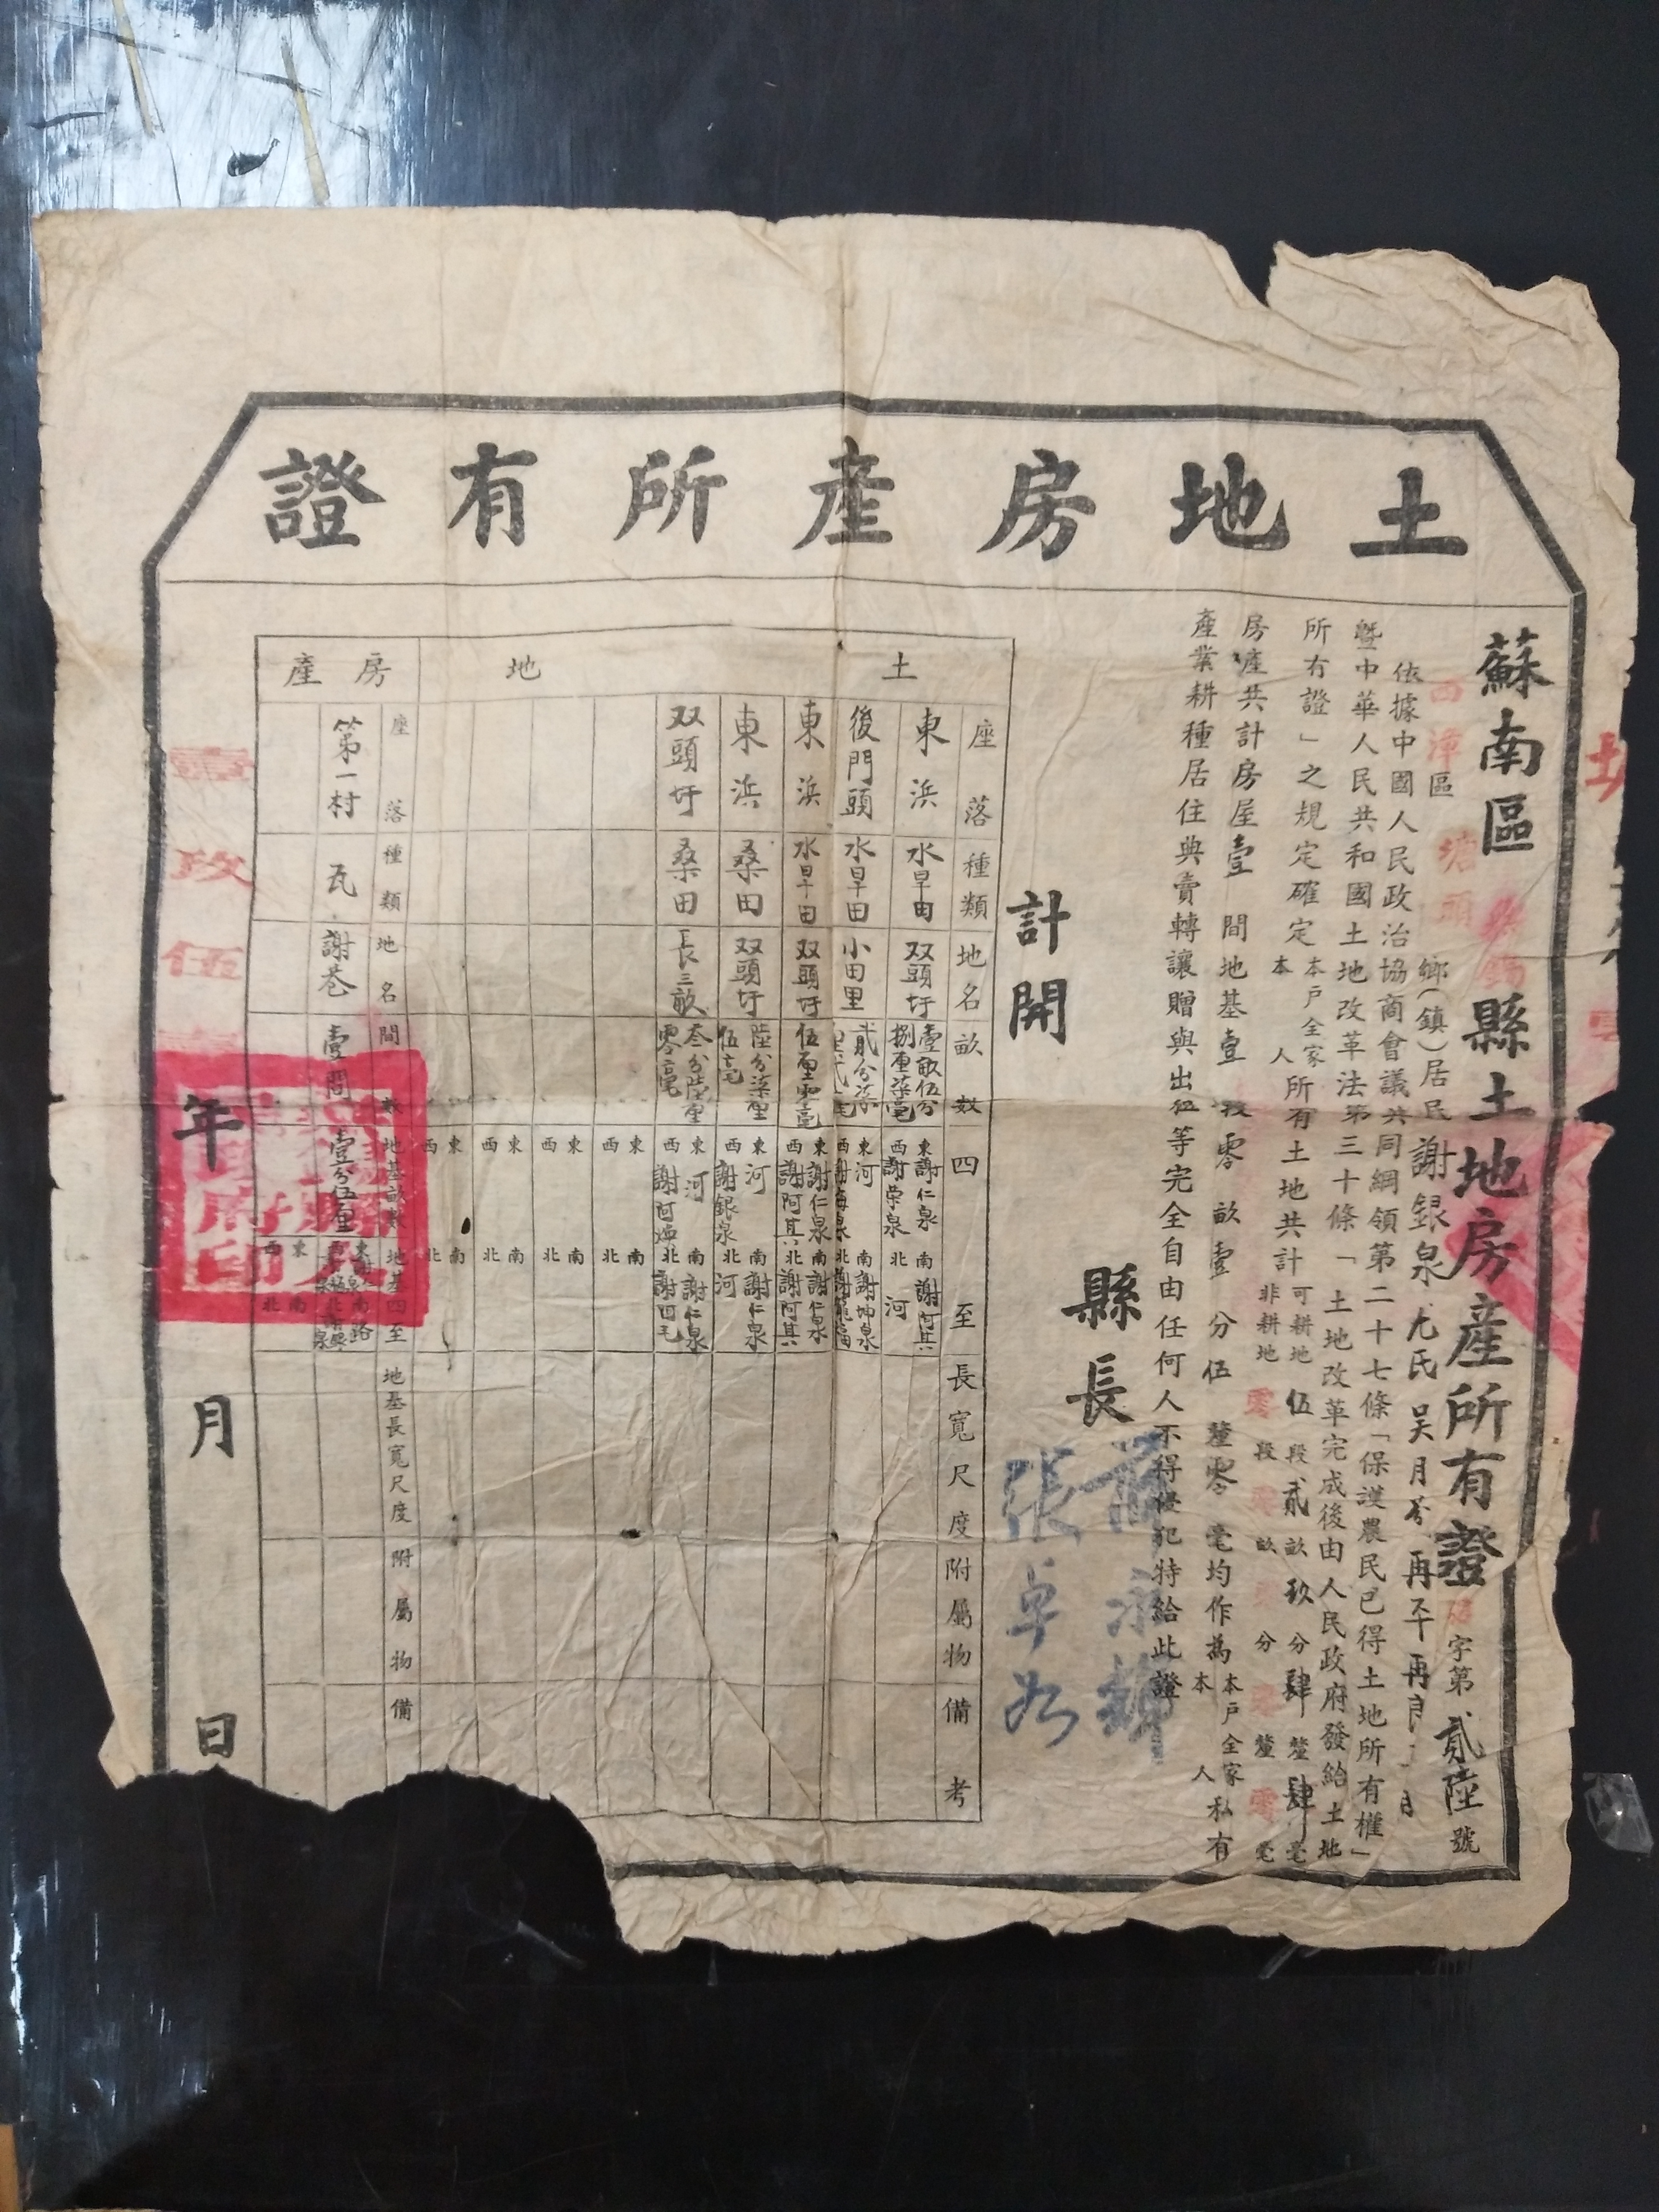 土地房產所有證
蘇南區無錫縣土地房產所有證 字第貳陸號
區塘頭鄉(鎮)居民謝銀泉尤氏吴月芬再平再良
依據中國人民政治協商會議共同綱領第二十七條「保護農民已得土地所有權」
暨中華人民共和國土地改革法第三十條「土地改革完成後由人民政府發給土地
所有證」之規定確定本戶全家本人所有土地共計可耕地伍段貳畝玖分肆釐肆毫
非耕地零段零畝零分零釐零毫
房產共計房屋壹間地基壹段零畝壹分伍釐零毫均作為本戶全家本人私有
產業耕種居住典賣轉讓贈與出租等完全自由任何人不得侵犯特給此證
縣長
張卓如
計開
土地
座落 種類 地名 畝數 四至 長寬尺度 附屬物 備考
東浜 水旱田 双頭圩 壹畝伍分捌厘柒毫 東謝仁泉 西謝荣泉 南謝阿其 北河
後門頭 水旱田 小田里 貳分柒 東河 西謝海泉 南謝坤泉 北謝
東浜 水旱田 双頭圩 伍厘零毫 東謝仁泉 西謝阿其 南謝仁泉 北謝阿其
東浜 桑田 双頭圩 陸分柒厘伍毫 東河 西謝銀泉 南謝仁泉 北河
双頭圩 桑田 長三畝 叁分陸厘零毫 東河 西謝阿 南謝仁泉 北謝四毛
東西南北
東西南北
東西南北
東西南北
房產
座落 種類 地名 間數 地基畝數 地基四至 地基長寬尺度 附屬物 備
第一村 瓦 謝巷 壹間 壹分伍厘 南路
東西南北
年月日